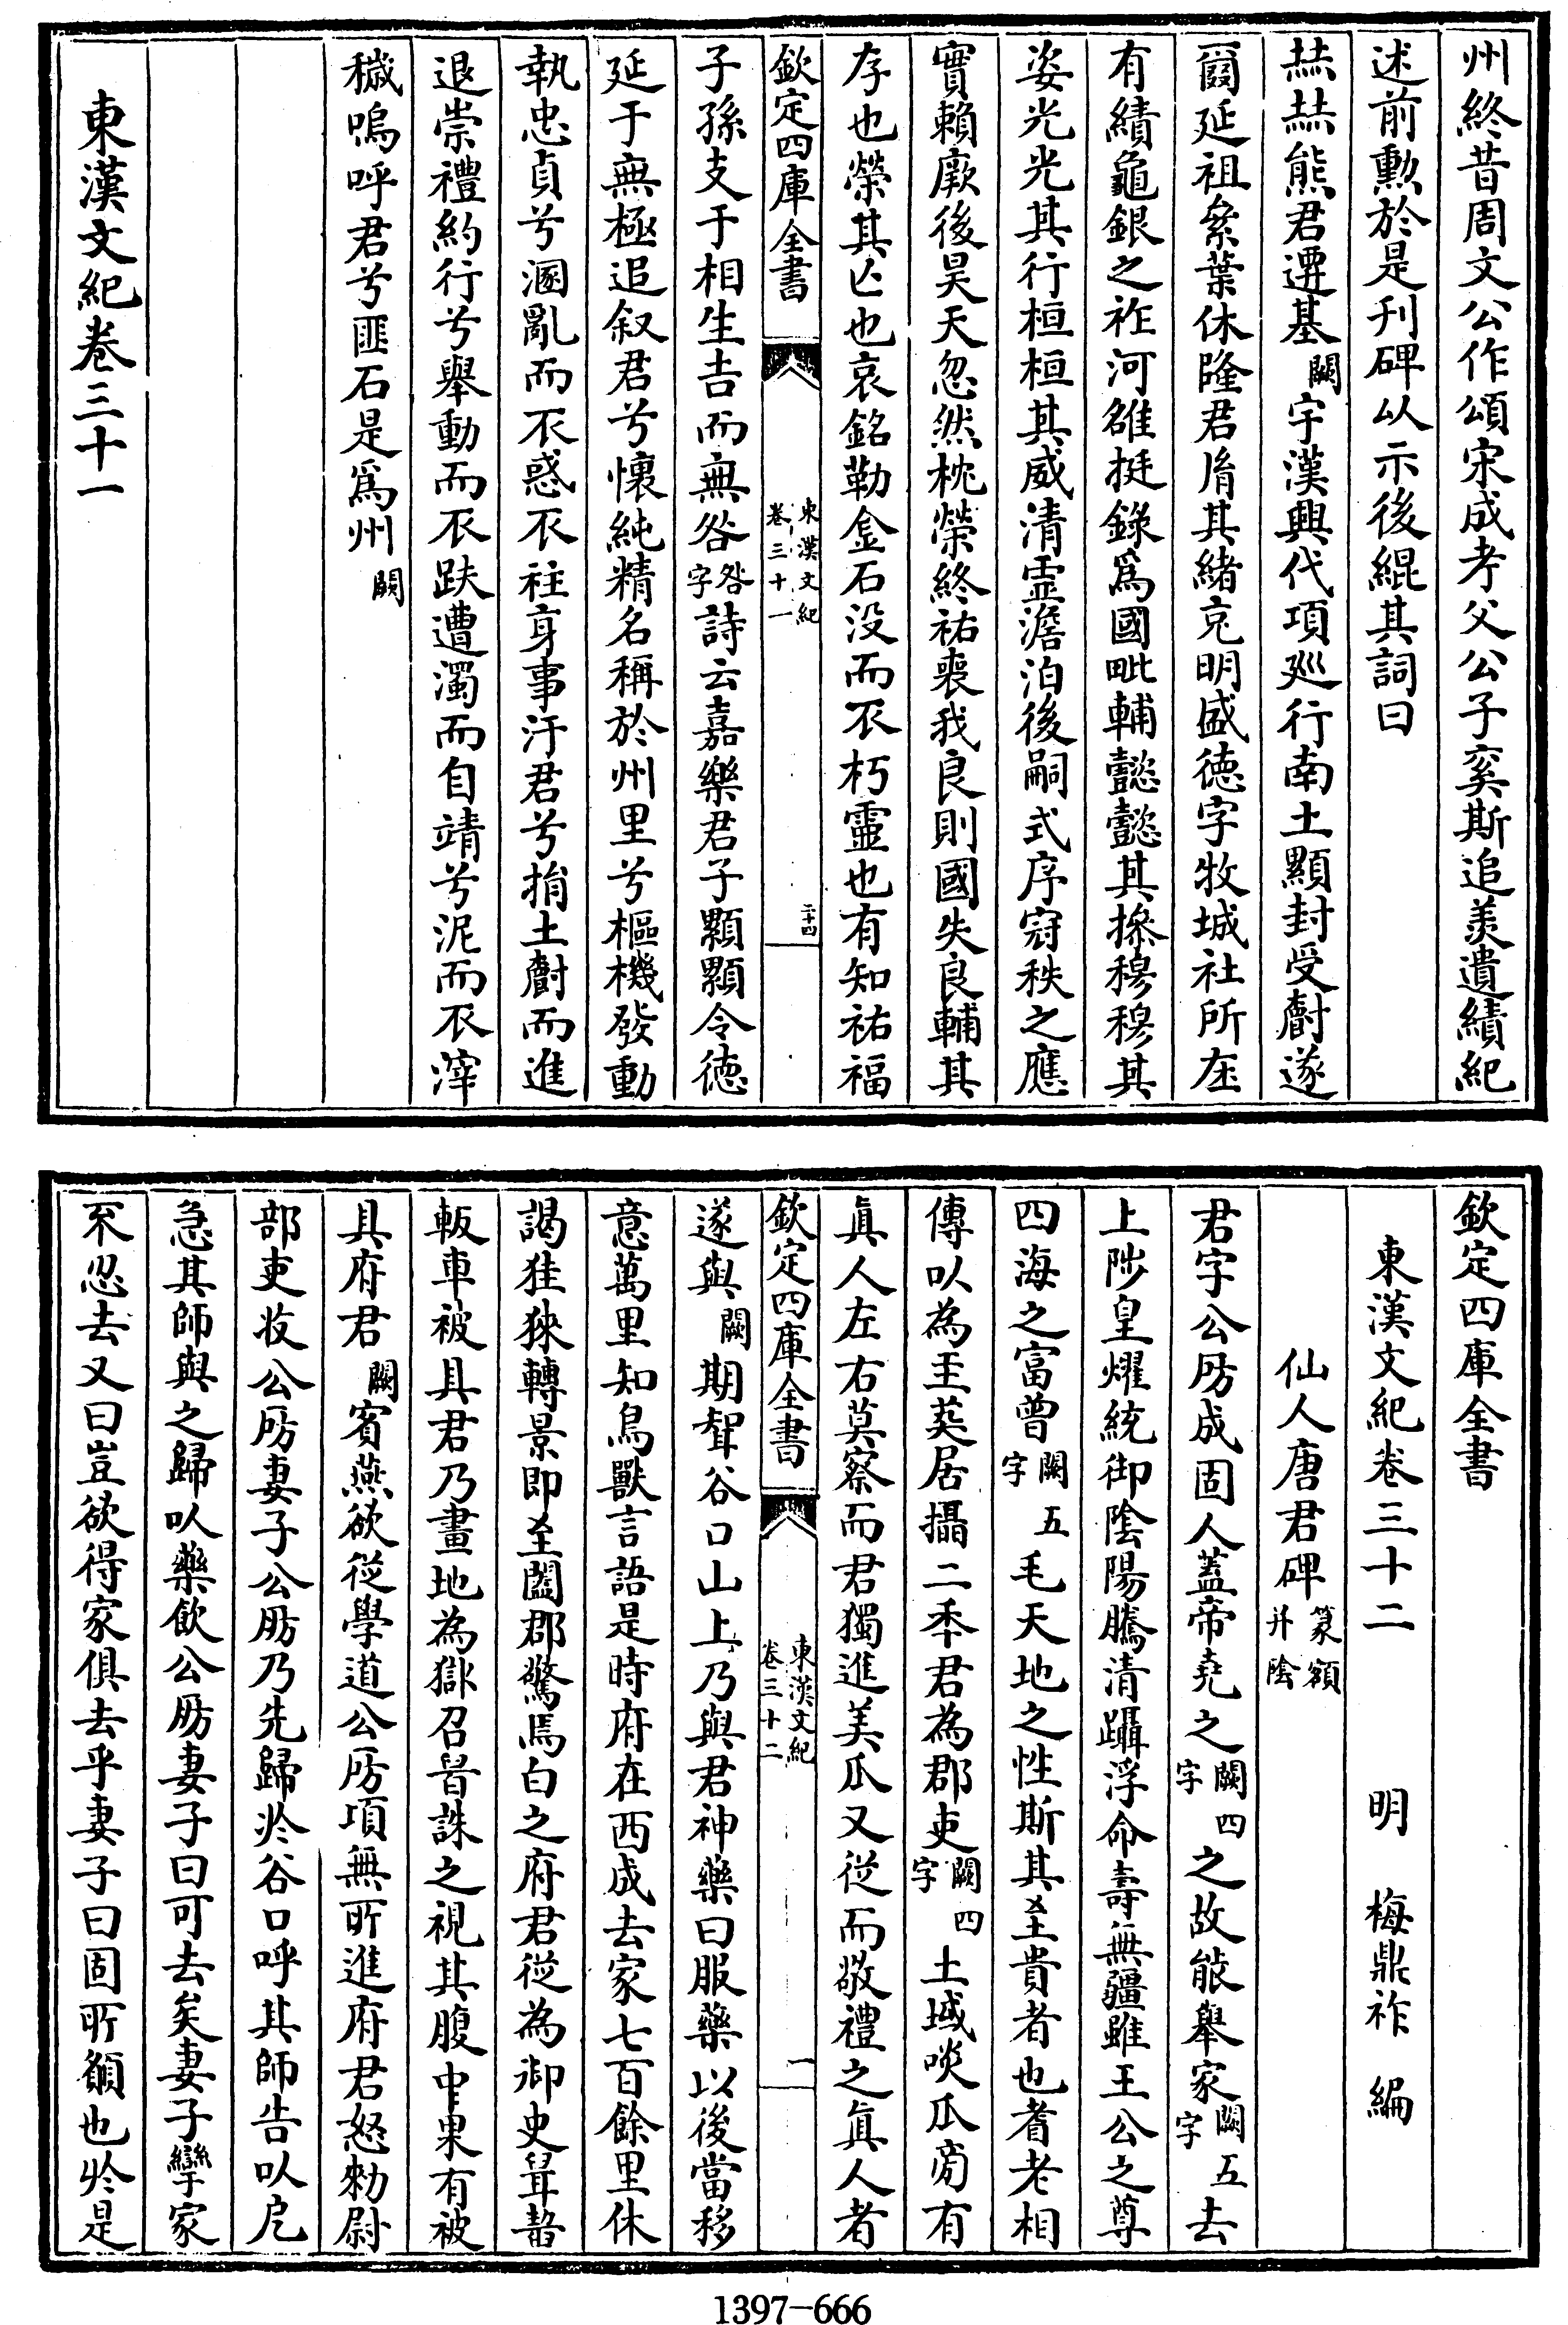 州終昔周文公作頌宋成考父公子奚斯追羡遺績紀
述前勲於是刊碑以示後緄其詞曰
赫赫熊君遷基闕宇漢興代項廵行南土顯封受爵遂
爾延祖絫葉休隆君胤其緒克明盛徳字牧城社所在
有績龜銀之祚河雒挺錄爲國毗輔懿懿其操穆穆其
姿光光其行桓桓其威清靈澹泊後嗣式序冠秩之應
實賴厥後昊天忽然枕榮終祐喪我良則國失良輔其
存也榮其亡也哀銘勒金石没而不朽靈也有知祐福
欽定四庫全書
東漢文紀
卷三十一
二十四
子孫支于相生吉而無咎咎字詩云嘉樂君子顯顯令徳
延于無極追叙君兮懷純精名稱於州里兮樞機發動
執忠貞兮溷亂而不惑不拄身事汙君兮捐土爵而進
退崇禮約行兮舉動而不趺遭濁而自靖兮泥而不滓
穢嗚呼君兮匪石是爲州闕
東漢文紀卷三十一
欽定四庫全書
東漢文紀卷三十二 明 梅鼎祚 編
仙人唐君碑篆額并陰
君字公房成固人蓋帝堯之闕四字之故能舉家闕五字去
上陟皇燿統御陰陽騰清躡浮命壽無疆雖王公之尊
四海之富曾闕五字毛天地之性斯其至貴者也耆老相
傳以為王莽居攝二年君為郡吏闕四字土域啖瓜旁有
真人左右莫察而君獨進美瓜又從而敬禮之真人者
欽定四庫全書
東漢文紀
卷三十二
一
遂與闕期聟谷口山上乃與君神藥曰服藥以後當移
意萬里知鳥獸言語是時府在西成去家七百餘里休
謁徃徠轉景即至闔郡驚焉白之府君從為御史䑕齧
軬車被具君乃畫地為獄召䑕誅之視其腹中果有被
具府君闕賓燕欲從學道公房頃無所進府君怒勑尉
部吏收公房妻子公房乃先歸於谷口呼其師告以戹
急其師與之歸以藥飲公房妻子曰可去矣妻子孿家
不忍去又曰豈欲得家俱去乎妻子曰固所願也於是
1397-666